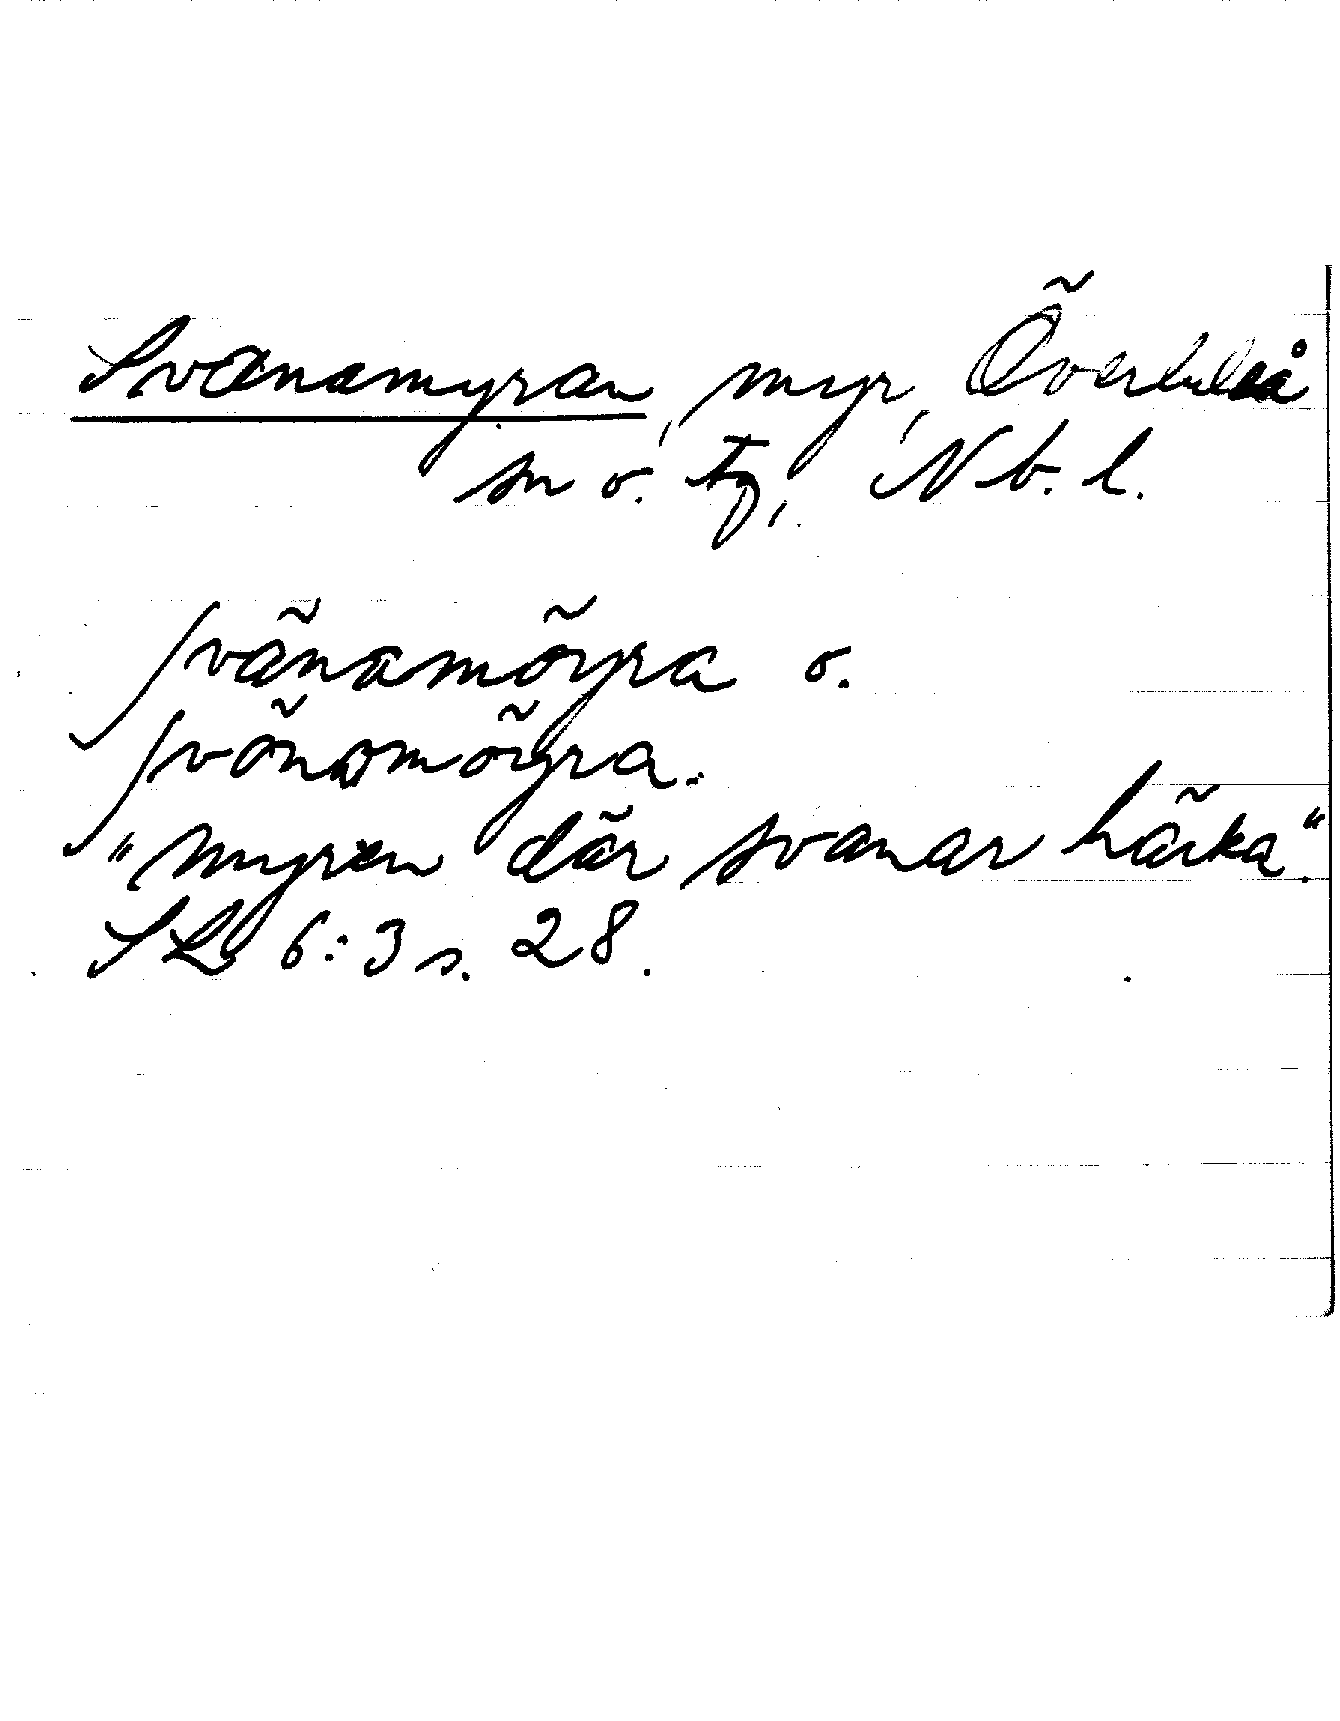 Svanamyran, myr, Överluleå
sn o. tg, Nb. l.
ʃvä̃namöyra o.
ʃvö̃namöyra.
"Myren där svanar häcka".
SL 6:3 s. 28.